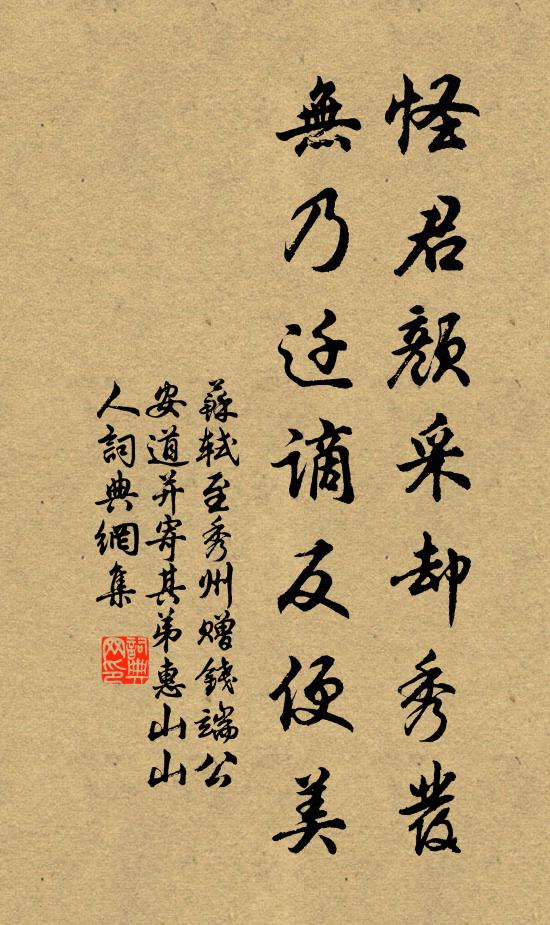 怪君顔采却秀發
無乃迁謫反便美
蘇軾至秀州贈錢端公
安道并寄其弟惠山山
人詞典網集
詞典网印